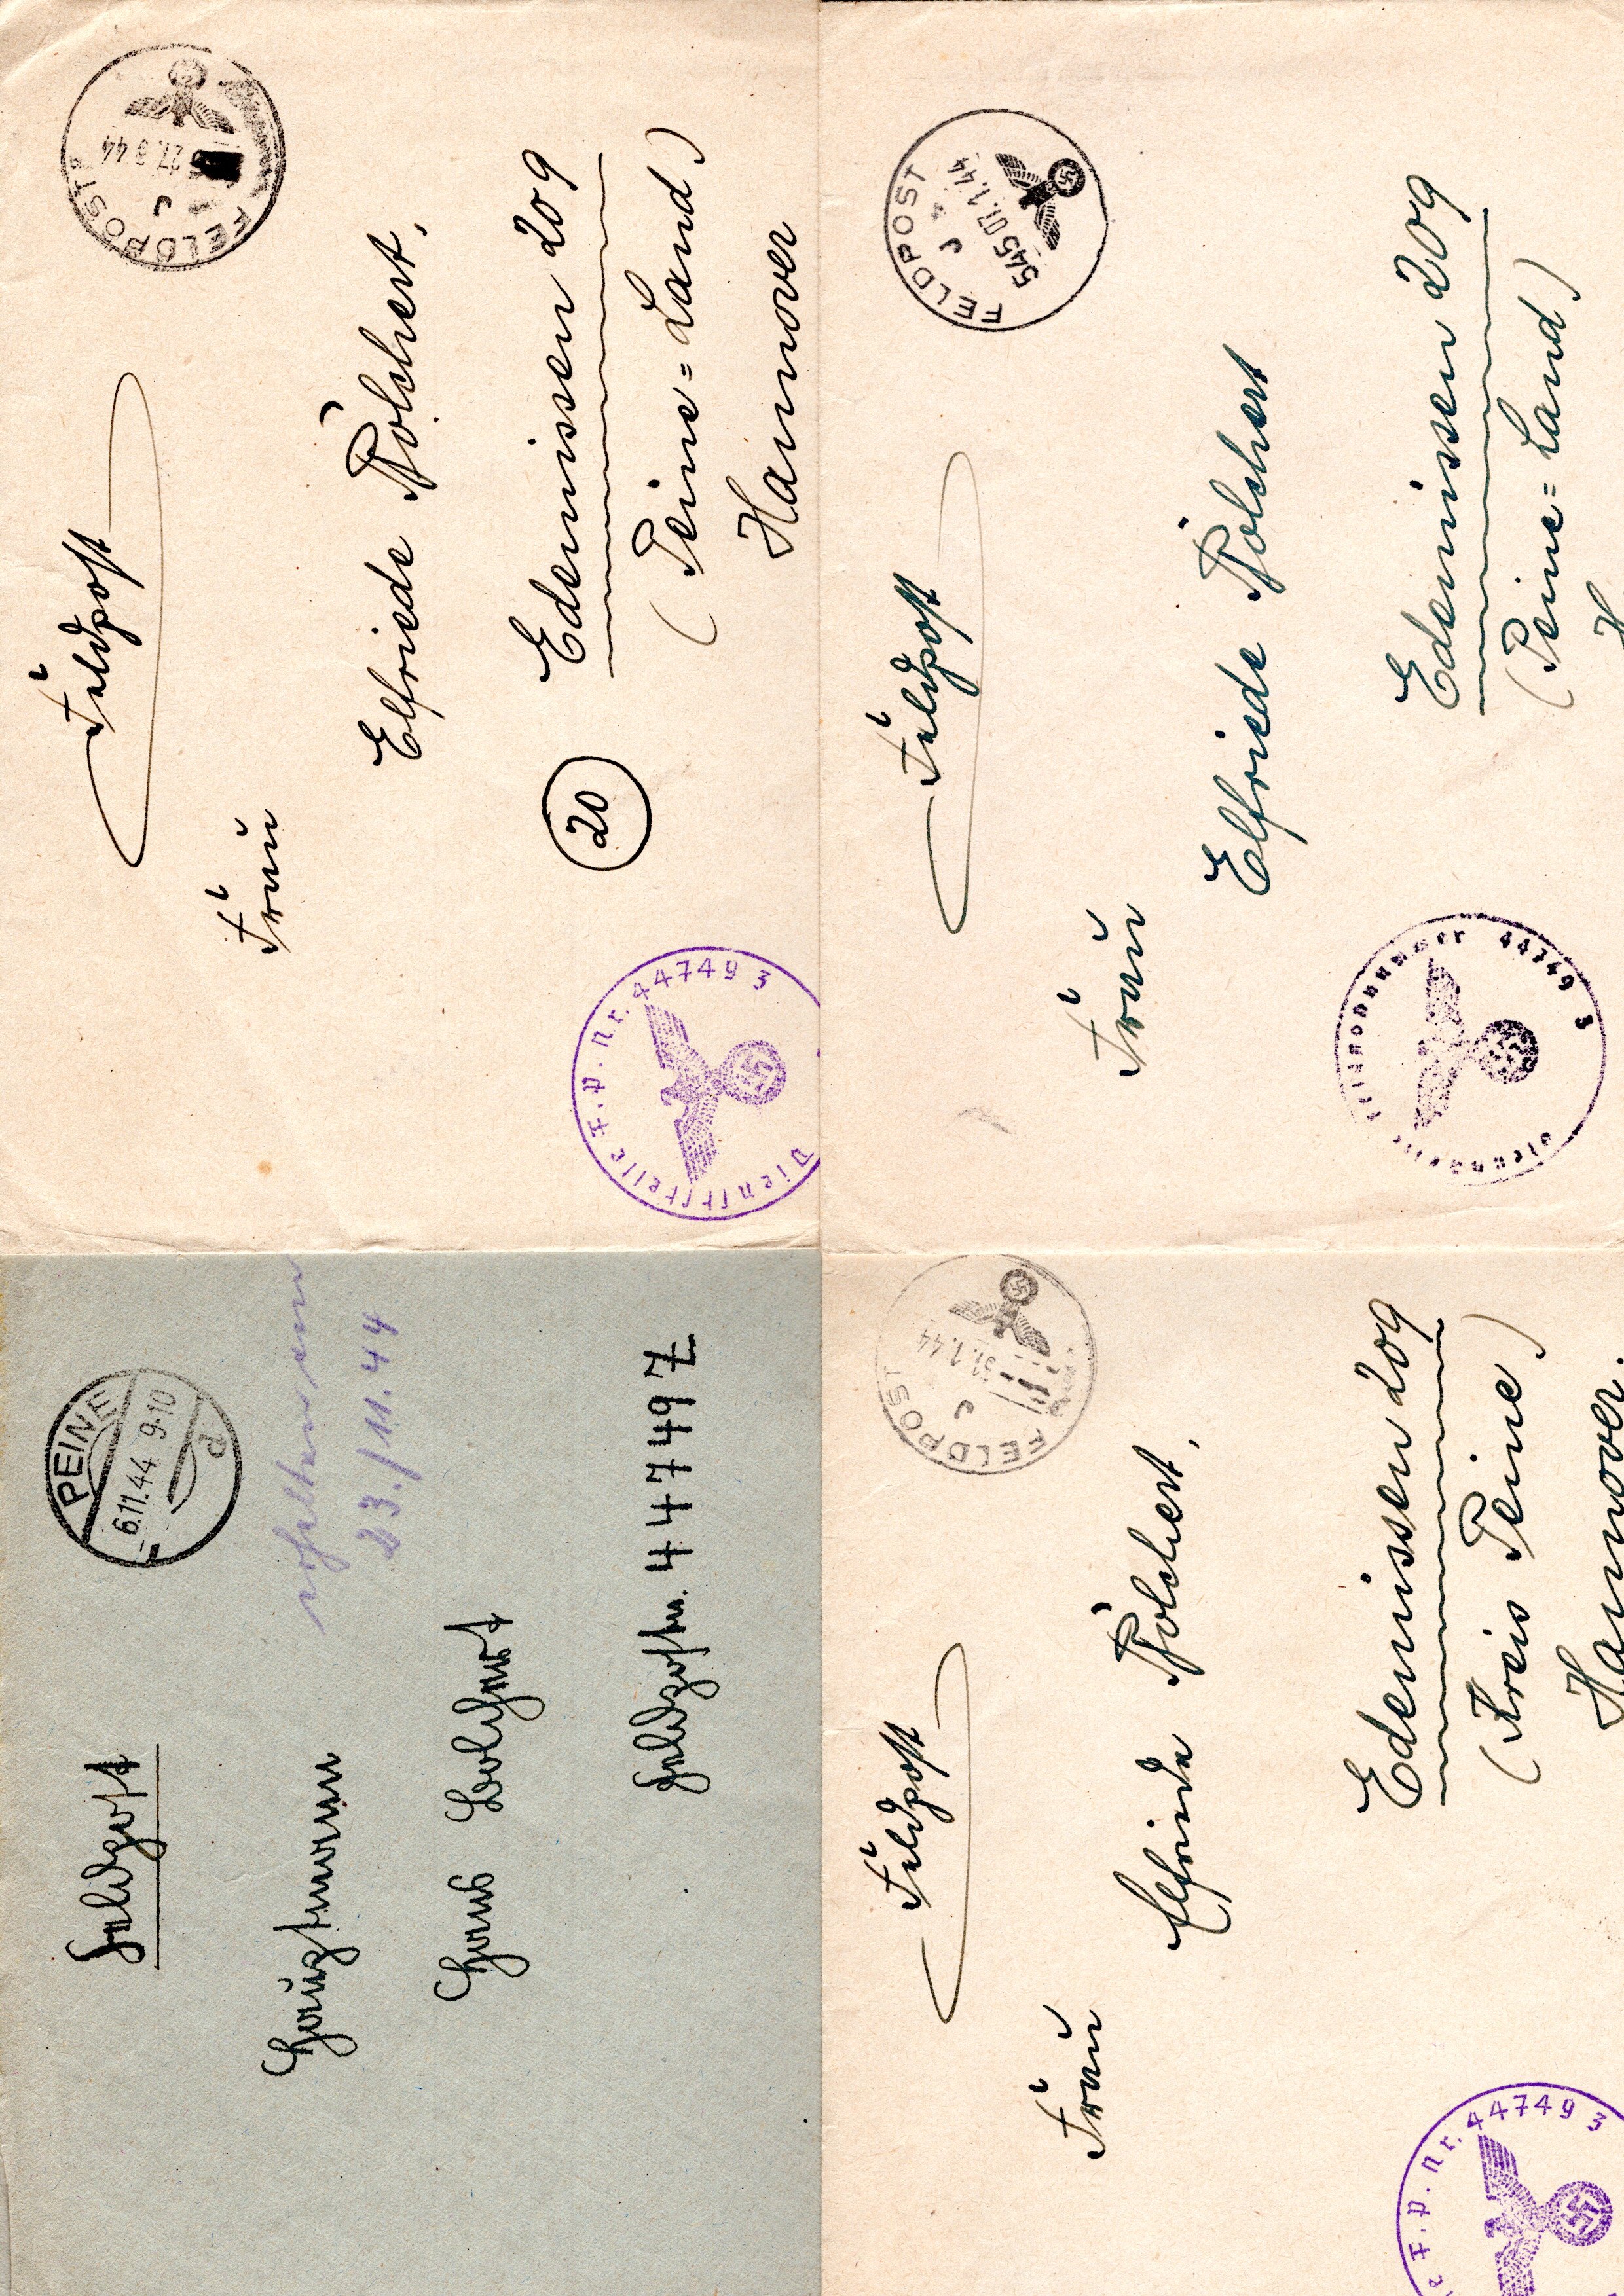 Feldpost
PEINE
-6.11.44 9-10
d
erhalten am
23./11.44
Hauptmann
Hans Bolchert
Feldpostnr. 44749 Z
Feldpost
FELDPOST
44
Frau
Elfriede Bolchert,
20
Edemissen 209
(Peine=Land)
Hannover
Dienststelle F.P.Nr. 44749 Z
Feldpost
FELDPOST
31.1.44
Frau
Elfriede Bolchert,
Edemissen 209
(Kreis Peine)
Hannover.
F.P.Nr. 44749 Z
Feldpost
FELDPOST
545 07.1.44
Frau
Elfriede Bolchert
Edemissen 209
(Peine=Land)
Dienststelle Feldpostnummer 44749 Z